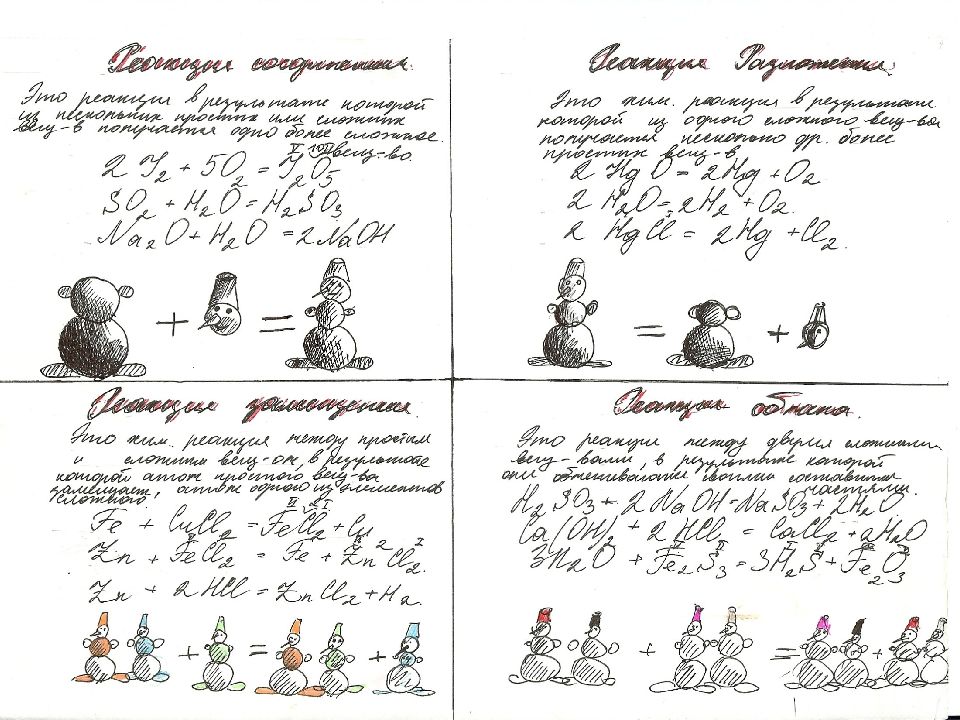 Реакции соединения.
Это реакция в результате которой
из нескольких простых или сложных
вещ-в получается одно более сложное
V II
вещ-во
2 I₂ + 5O₂ = I₂O₅
SO₂ + H₂O = H₂SO₃
Na₂O + H₂O = 2NaOH
+ =
Реакция Разложения.
Это хим. реакция в результате
которой из одного сложного вещ-ва
получается несколько др. более
простых вещ-в
2 HgO = 2Hg + O₂
2 H₂O = 2H₂ + O₂.
2 HgCl = 2Hg + Cl₂.
= +
Реакция замещения
Это хим. реакция между простым
и сложным вещ-ом, в результате
которой атом простого вещ-ва
замещает, атом одного из элементов
сложного.
II I
Fe + CuCl₂ = FeCl₂ + Cu
Zn + FeCl₂ = Fe + ZnCl₂.
Zn + 2 HCl = ZnCl₂ + H₂.
+ = +
Реакции обмена.
Это реакции между двумя сложными
вещ-вами, в результате которой
они обмениваются своими составными
частями.
H₂SO₃ + 2 NaOH = NaSO₃ + 2H₂O.
Ca(OH)₂ + 2 HCl = CaCl₂ + 2H₂O
3H₂O + Fe₂S₃ = 3H₂S + Fe₂O₃
+ = +